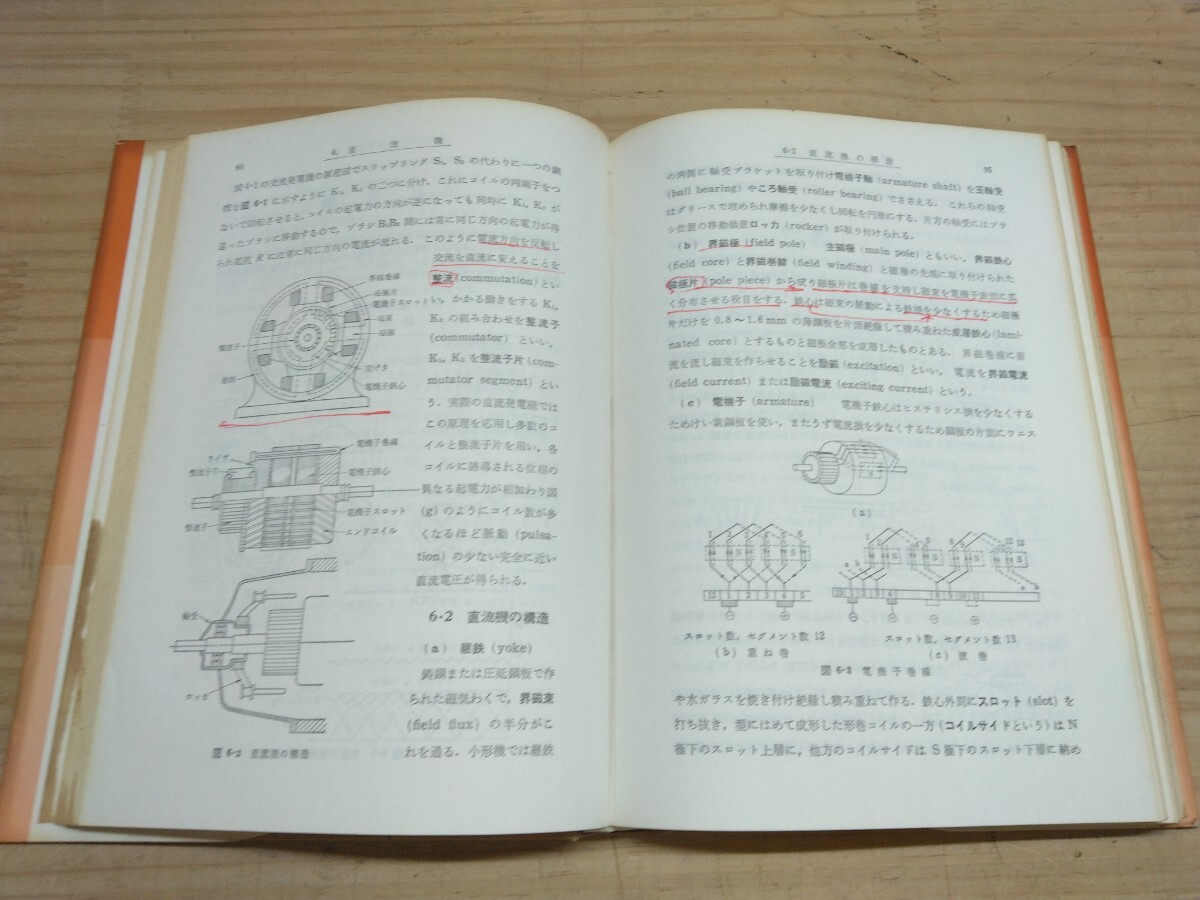 94
6. 直流機
図4·1の交流発電機の原理図でスリップリング S₁, S₂ の代わりに一つの銅
環を図6·1に示すように K₁, K₂ の二つに分け, これにコイルの両端子をつ
ないで回転させると, コイルの起電力の方向が逆になっても同時に K₁, K₂ が
違ったブラシに移動するので, ブラシ B₁B₂ 間には常に同じ方向の起電力が得
られ抵抗 R には常に同じ方向の電流が流れる. このように電流方向を反転し
交流を直流に変えることを
整流 (commutation) とい
い, かかる働きをする K₁,
K₂ の組み合わせを整流子
(commutator) といい,
K₁, K₂ を整流子片 (com-
mutator segment) とい
う. 実際の直流発電機では
この原理を応用し多数のコ
イルと整流子片を用い, 各
コイルに誘導される位相の
異なる起電力が相加わり図
(g) のようにコイル数が多
くなるほど脈動 (pulsa-
tion) の少ない完全に近い
直流電圧が得られる.
界磁巻線
磁極片
電機子スロット
磁極
整流子
空げき
電機子鉄心
電機子巻線
ライザ
整流子片
電機子鉄心
電機子スロット
整流子
エンドコイル
軸受
ロッカ
図6·2 直流機の構造
6·2 直流機の構造
(a) 継鉄 (yoke)
鋳鋼または圧延鋼板で作
られた磁気わくで, 界磁束
(field flux) の半分がこ
れを通る. 小形機では継鉄
6·2 直流機の構造
95
の両側に軸受ブラケットを取り付け電機子軸 (armature shaft) を玉軸受
(ball bearing) やころ軸受 (roller bearing) でささえる. これらの軸受
はグリースで埋められ摩擦を少なくし回転を円滑にする. 片方の軸受にはブラ
シ位置の移動装置ロッカ (rocker) が取り付けられる.
(b) 界磁極 (field pole) 主磁極 (main pole) ともいい, 界磁鉄心
(field core) と界磁巻線 (field winding) と磁極の先端に取り付けられた
磁極片 (pole piece) から成り磁極片は巻線を支持し磁束を電機子表面に広
く分布させる役目をする. 鉄心は磁束の脈動による鉄損を少なくするため磁極
片だけを 0.8〜1.6mm の薄鋼板を片面絶縁して積み重ねた成層鉄心 (lami-
nated core) とするものと磁極全部を成層したものとある. 界磁巻線に直
流を流し磁束を作らせることを励磁 (excitation) といい, 電流を界磁電流
(field current) または励磁電流 (exciting current) という.
(c) 電機子 (armature) 電機子鉄心はヒステリシス損を少なくする
ためけい素鋼板を使い, またうず電流損を少なくするため鋼板の片面にワニス
(a)
スロット数, セグメント数 12
(b) 重ね巻
スロット数, セグメント数 13
(c) 波巻
図6·3 電機子巻線
や水ガラスを焼き付け絶縁し積み重ねて作る. 鉄心外周にスロット (slot) を
打ち抜き, 型にはめて成形した形巻コイルの一方 (コイルサイドという) は N
極下のスロット上層に, 他方のコイルサイドは S 極下のスロット下層に納め